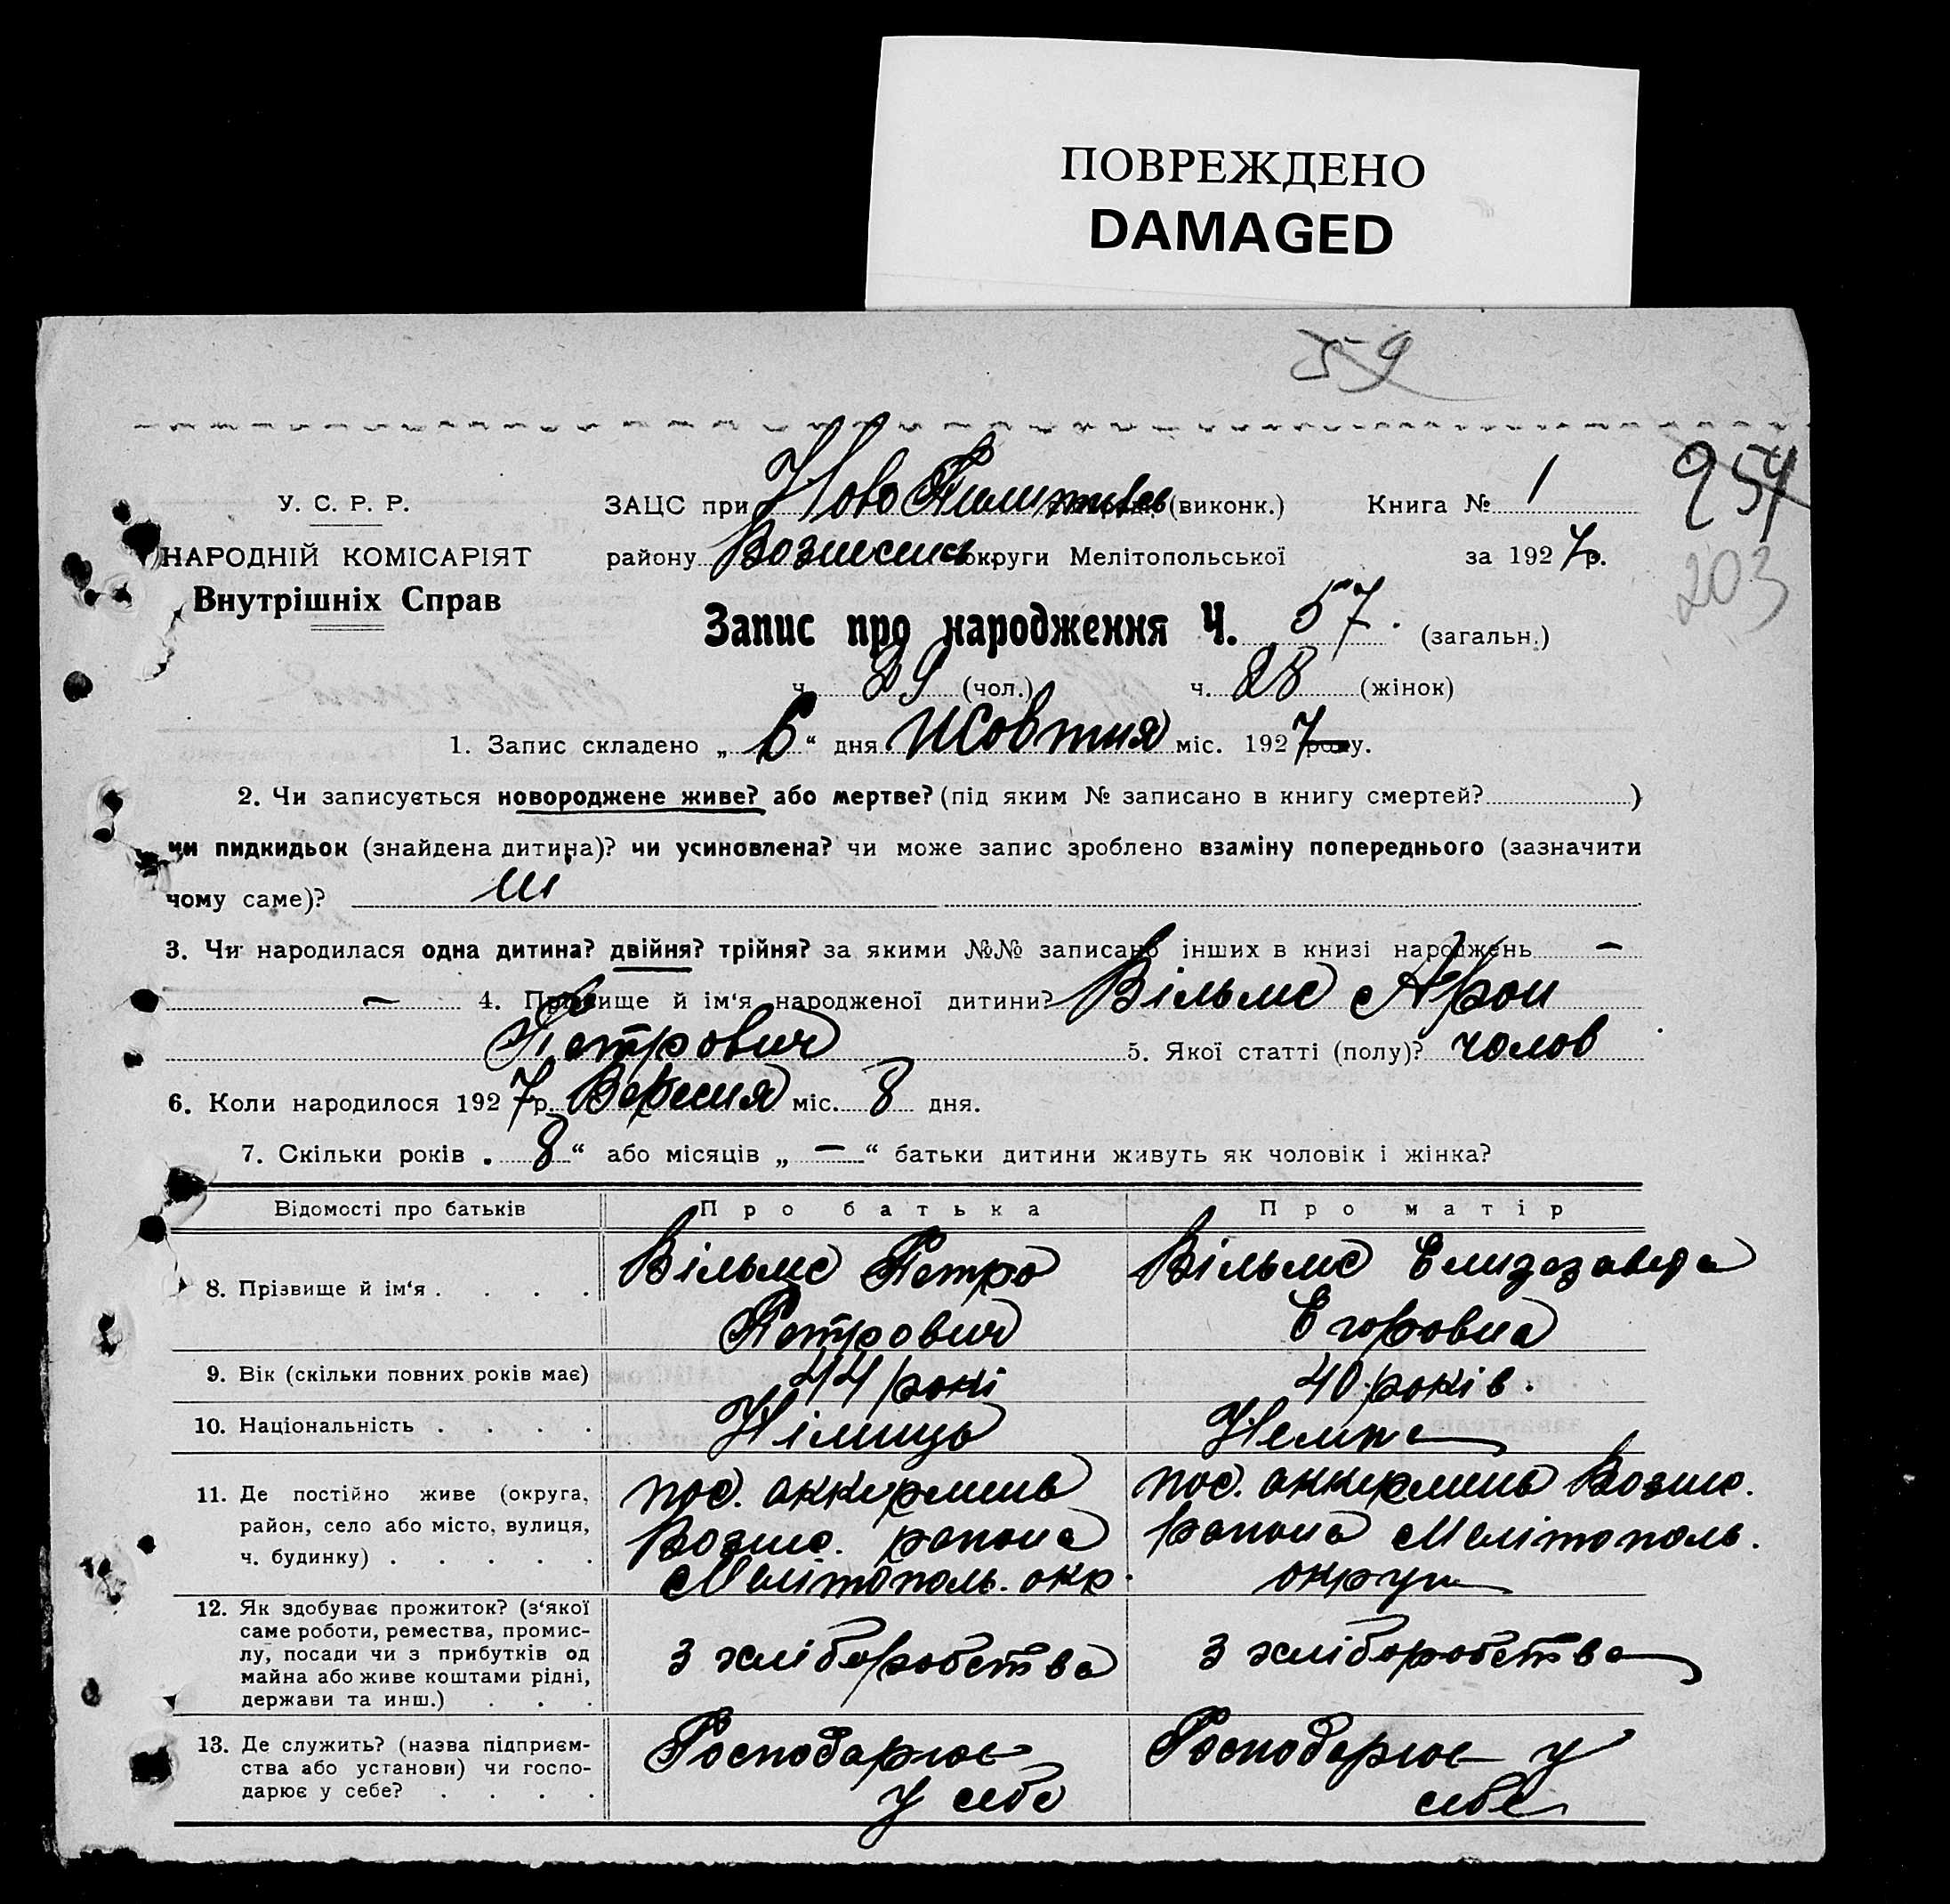 ПОВРЕЖДЕНО
DAMAGED
59
У. С. Р. Р.
ЗАЦС при Ново (виконк.)
Книга № 1
254
НАРОДНІЙ КОМІСАРІЯТ
району Вознесенсь округи Мелітопольської
за 1927 р.
203
Внутрішніх Справ
Запис про народження Ч. 57. (загальн.)
ч. 29 (чол.) ч. 28 (жінок)
1. Запис складено „ 6 “ дня Жовтня міс. 1927 року.
2. Чи записується новороджене живе? або мертве? (під яким № записано в книгу смертей? )
чи пидкидьок (знайдена дитина)? чи усиновлена? чи може запис зроблено взаміну попереднього (зазначити
чому саме)? ні
3. Чи народилася одна дитина? двійня? трійня? за якими №№ записано інших в книзі народжень —
— 4. Прізвище й ім‘я народженої дитини? Вільмс Арон
Петрович 5. Якої статті (полу)? чолов
6. Коли народилось 1927 р. Вересня міс. 8 дня.
7. Скільки років „ 8 “ або місяців „ — “ батьки дитини живуть як чоловік і жінка?
Відомості про батьків
Про батька
Про матір
8. Прізвище й ім‘я . . . .
Вільмс Петро
Петрович
Вільмс Елизезавета
Егоровна
9. Вік (скільки повних років має)
44 рокі
40 років.
10. Національність . . . .
Німиць
Немка
11. Де постійно живе (округа,
район, село або місто, вулиця,
ч. будинку) . . . . .
пос. аккермень
Возне. раиона
Мелітополь. окр.
пос. аккермень Возне.
раиона Мелітополь.
округи
12. Як здобуває прожиток? (з‘якої
саме роботи, ремества, промис-
лу, посади чи з прибутків од
майна або живе коштами рідні,
держави та инш.) . . .
з хліборобства
з хліборобства
13. Де служить? (назва підприєм-
ства або установи) чи госпо-
дарює у себе? . . . .
Господарює
у себе
Господарює у
себе